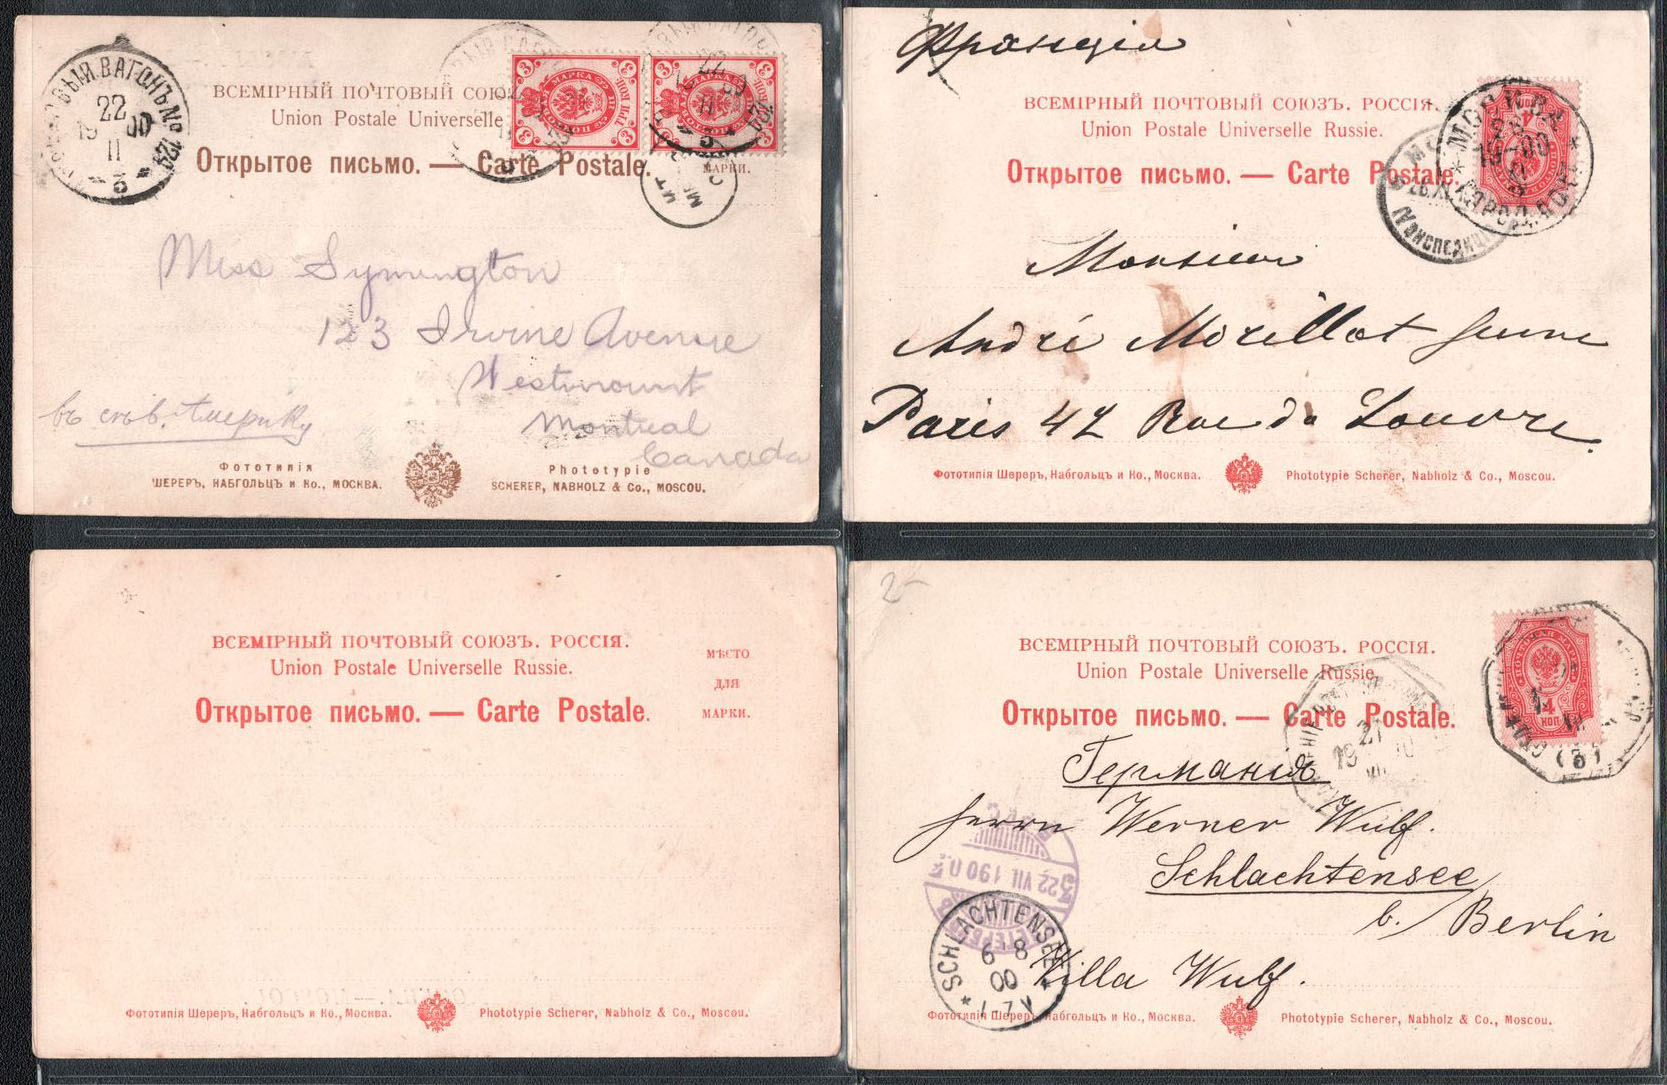 ПОЧТОВЫЙ ВАГОНЪ № 124
22
19 00
II
3
ВСЕМІРНЫЙ ПОЧТОВЫЙ СОЮЗЪ
Union Postale Universelle
Открытое письмо. — Carte Postale.
МАРКИ.
Miss Symington
123 Irvine Avenue
Westmount
Montreal
Canada
въ сѣв. Америку
Фототипія
ШЕРЕРЪ, НАБГОЛЬЦЪ и Ко., МОСКВА.
Phototypie
SCHERER, NABHOLZ & Co., MOSCOU.
Франція
ВСЕМІРНЫЙ ПОЧТОВЫЙ СОЮЗЪ. РОССІЯ.
Union Postale Universelle Russie.
Открытое письмо. — Carte Postale.
МОСКВА
Monsieur
André Morillot jeune
Paris 42 Rue du Louvre.
Фототипія Шереръ, Набгольцъ и Ко., Москва.
Phototypie Scherer, Nabholz & Co., Moscou.
ВСЕМІРНЫЙ ПОЧТОВЫЙ СОЮЗЪ. РОССІЯ.
Union Postale Universelle Russie.
Открытое письмо. — Carte Postale.
МѢСТО
ДЛЯ
МАРКИ.
Фототипія Шереръ, Набгольцъ и Ко., Москва.
Phototypie Scherer, Nabholz & Co., Moscou.
2-
ВСЕМІРНЫЙ ПОЧТОВЫЙ СОЮЗЪ. РОССІЯ.
Union Postale Universelle Russie.
Открытое письмо. — Carte Postale.
4
КОП
Германія
Herrn Werner Wulf.
Schlachtensee
b. Berlin
Villa Wulf.
22 VII 190
SCHLACHTENSEE
6 8
00
Фототипія Шереръ, Набгольцъ и Ко., Москва.
Phototypie Scherer, Nabholz & Co., Moscou.